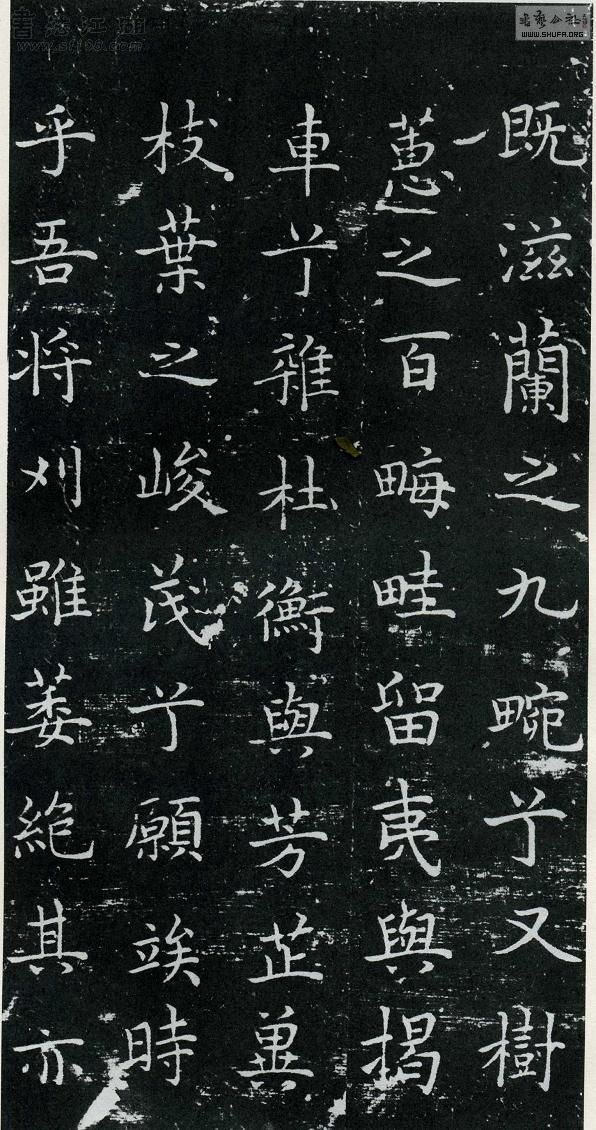 既滋蘭之九畹兮又樹
蕙之百畮畦留夷與揭
車兮雜杜衡與芳芷冀
枝葉之峻茂兮願竢時
乎吾将刈雖萎絶其亦
書法江湖
www.sf108.com
書藝公社
WWW.SHUFA.ORG